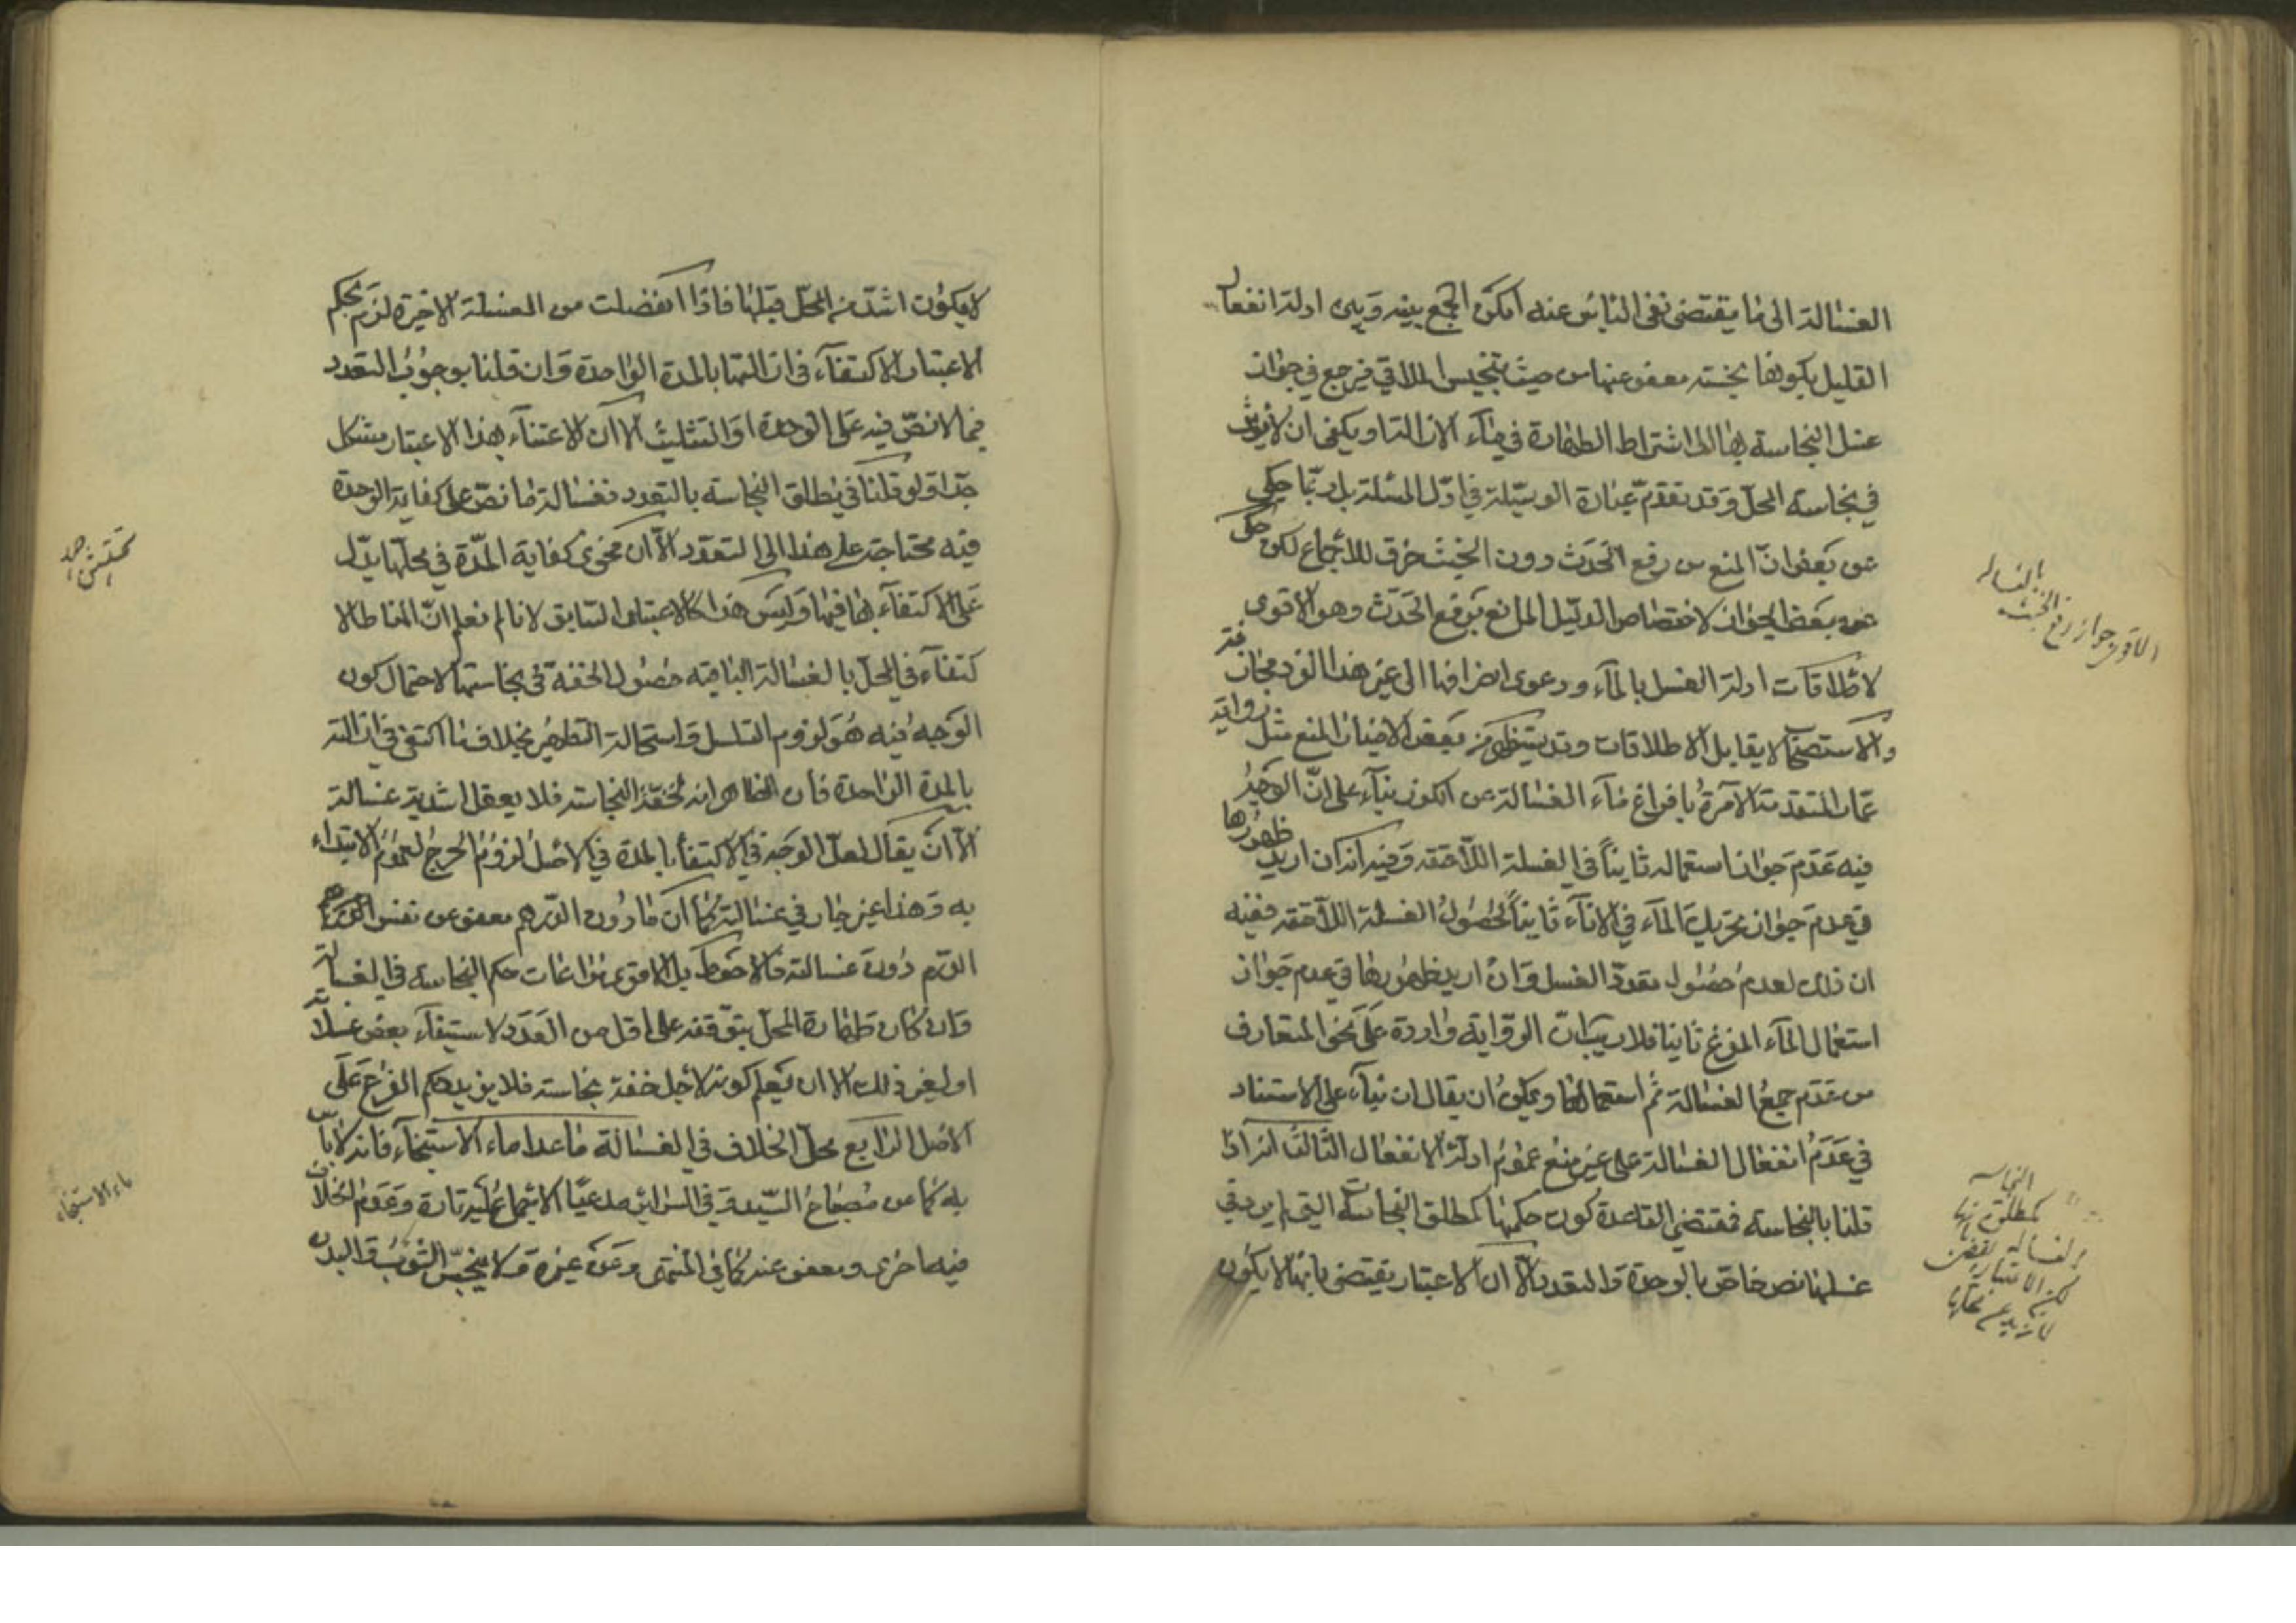 الغسالة الى ما يقتضى نفى الباس عنه امكن الجمع بينه وبين ادلة انفعال
القليل بكونها نجسته معفو عنها من حيث تنجيس الملاقي فيرجع في جواز
غسل النجاسة بها الى اشتراط الطهارة في ماء الازالة او يكفى ان لا يؤثر
في نجاسة المحل وقد تقدم عبارة الوسيلة في اول المسئلة بل ربما حكي
عن بعض ان المنع من رفع الحدث دون الخبث خرق للاجماع لكن حكى
عن بعض الجواز لاختصاص الدليل المانع برفع الحدث وهو الاقوى
لاطلاقات ادلة الغسل بالماء ودعوى انصرافها الى غير هذا الفرد مجازفة
والاستصحاب لا يقابل الاطلاقات وقد يستظهر من بعض الاخبار المنع مثل رواية
عمار المتقدمة الآمرة بافراغ ماء الغسالة عن الكوز بناء على ان الوجه
فيه عدم جواز استعماله ثانيا في الغسلة اللاحقة وفيه انه ان اريد ظهورها
في عدم جواز تحريك الماء في الاناء ثانيا لحصول الغسلة اللاحقة ففيه
ان ذلك لعدم حصول تعدد الغسل وان اريد ظهورها في عدم جواز
استعمال الماء المفرغ ثانيا فلا ريب ان الرواية واردة على نحو المتعارف
من عدم جمع الغسالة ثم استعمالها ويمكن ان يقال ان بناء على الاستناد
في عدم انفعال الغسالة على غير منع عموم ادلة الانفعال الثالث انه اذا
قلنا بالنجاسة فمقتضى القاعدة كون حكمها كمطلق النجاسة التي لم يرد في
غسلها نص خاص بالوحدة والتعدد الا ان الاعتبار يقتضى بانها لا يكون
بالغساله
الاقوى جواز رفع الخبث
النجاسة
كمطلق
الغسالة
لكن الاعتبار
لا يكون اشد من المحل قبلها فاذا انفصلت من الغسلة الاخيرة لزم بحكم
الاعتبار الاكتفاء في ازالتها بالمرة الواحدة وان قلنا بوجوب التعدد
فيما لا نص فيه على الوحدة او التثليث الا ان الاعتناء بهذا الاعتبار مشكل
جدا ولو قلنا في مطلق النجاسة بالتعدد فغسالة ما نص على كفاية الوحدة
فيه محتاجة على هذا الى التعدد الا ان فحوى كفاية المرة في محلها يدل
على الاكتفاء بها فيها وليس هذا كالاعتبار السابق لانا لم نعلم ان المناط الا
كتفاء في المحل بالغسالة الباقية حصول الخفة في نجاستها لاحتمال كون
الوجه فيه هو لزوم التسلسل واستحالة التطهير بخلاف ما اكتفى في ازالته
بالمرة الواحدة فان الظاهر انه لخفة النجاسة فلا يعقل اشدية غسالته
الا ان يقال لعل الوجه في الاكتفاء بالمرة في الاصل لزوم الحرج لعموم الابتداء
به وهذا غير جار في غسالته كما ان ما دون الدرهم معفو عن نفس
الدم دون غسالته فالاحوط بل الاقوى مراعات حكم النجاسة في الغسالة
وان كان طهارة المحل يتوقف على اقل من العدد لاستيفاء بعض غسلاته
او لغير ذلك الا ان يعلم كونه لاجل خفة نجاسته فلا يزيد حكم الفرع على
الاصل الرابع محل الخلاف في الغسالة ما عدا ماء الاستنجاء فانه لا باس
به كما عن مصباح السيد وفي السرائر مدعيا الاجماع عليه تارة وعدم الخلاف
فيه اخرى ومعفو عنه كما في المنتهى وعن غيره ولا ينجس الثوب والبدن
ماء الاستنجاء